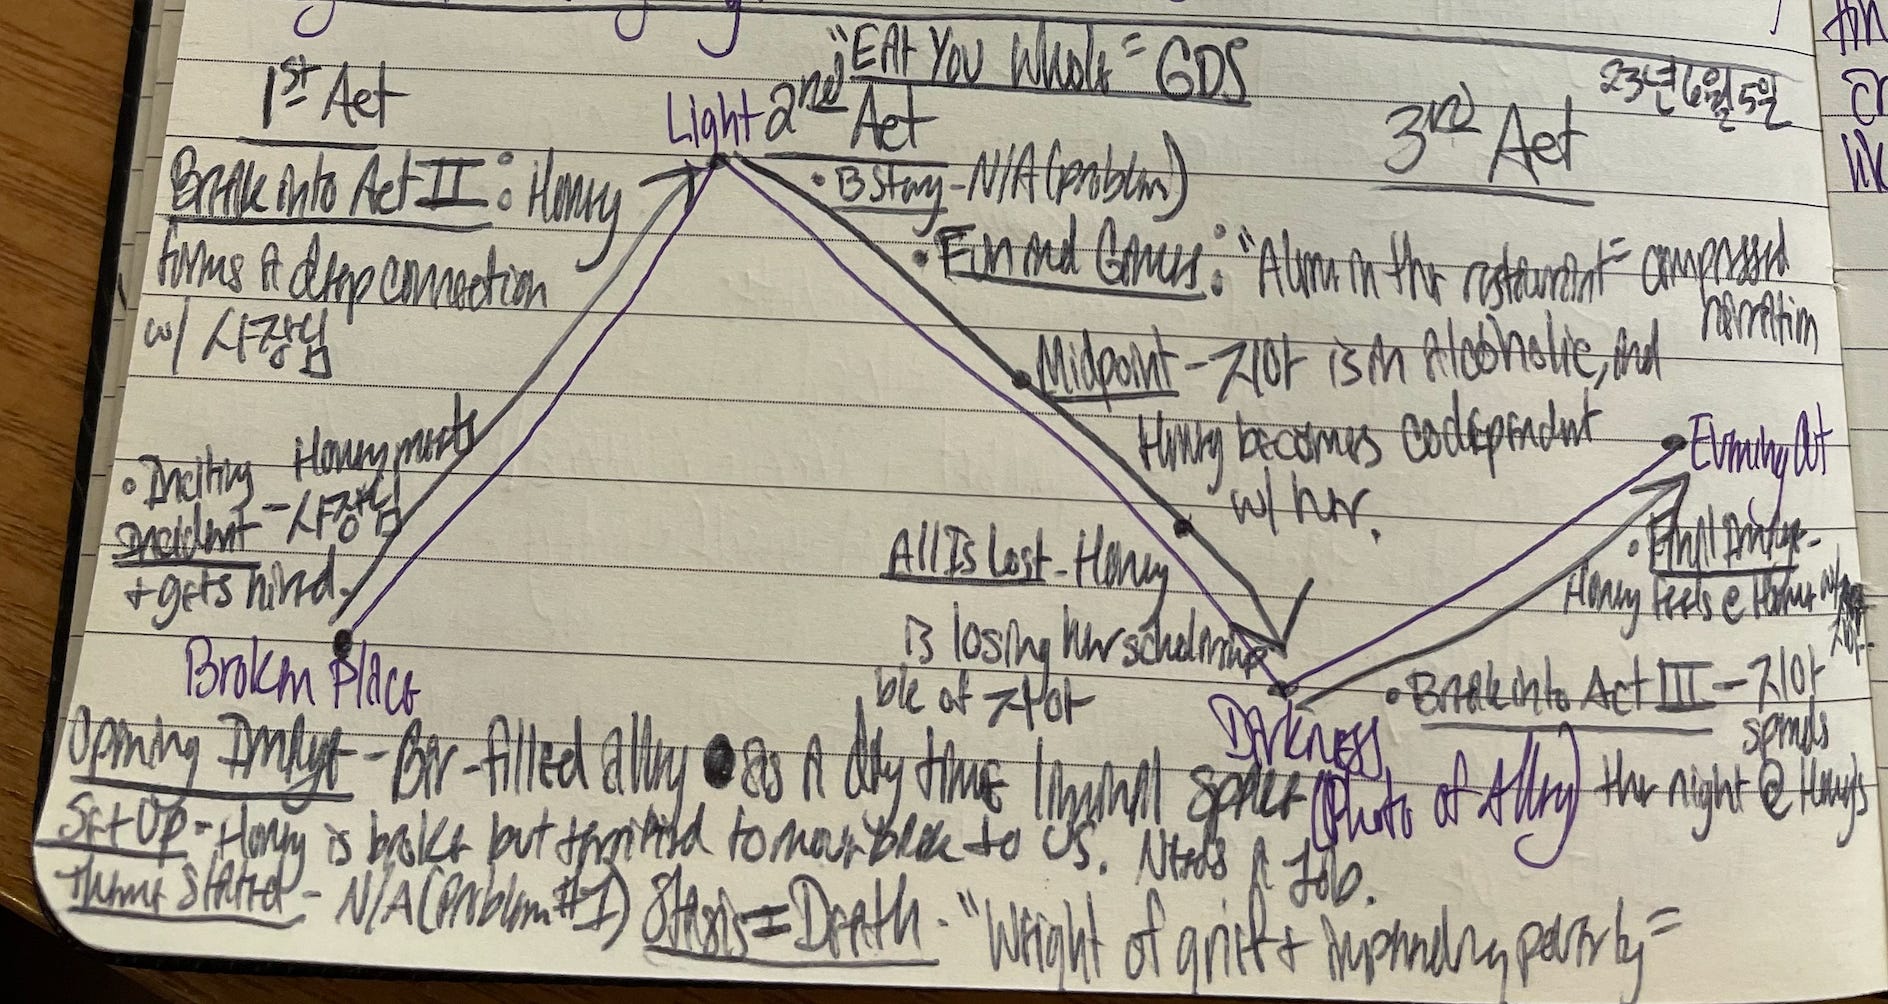 "Eat You Whole" GDS
23년6월5일
1st Act
Light
2nd Act
3rd Act
Break into Act II: Honey
forms a deep connection
w/ 사장님
• B Story - N/A (problem)
• Fun and Games: "Alone in the restaurant" compressed
narration
• Midpoint - 지아 is an Alcoholic, and
Honey becomes codependent
w/ her.
• Inciting Incident - Honey meets
사장님
+ gets hired.
All Is Lost - Honey
is losing her scholarship
b/c of 지아
Evening Out
• Final Image -
Honey feels @ Home w/
지아.
Broken Place
Darkness
(Photo of Alley)
• Break into Act III - 지아
spends
the night @ Honey's
Opening Image - Bar-filled alley as a day time liminal space
Set Up - Honey is broke but terrified to move back to US. Needs a Job.
Theme Stated - N/A (Problem #1) Stasis = Death - "Weight of grief + impending poverty"